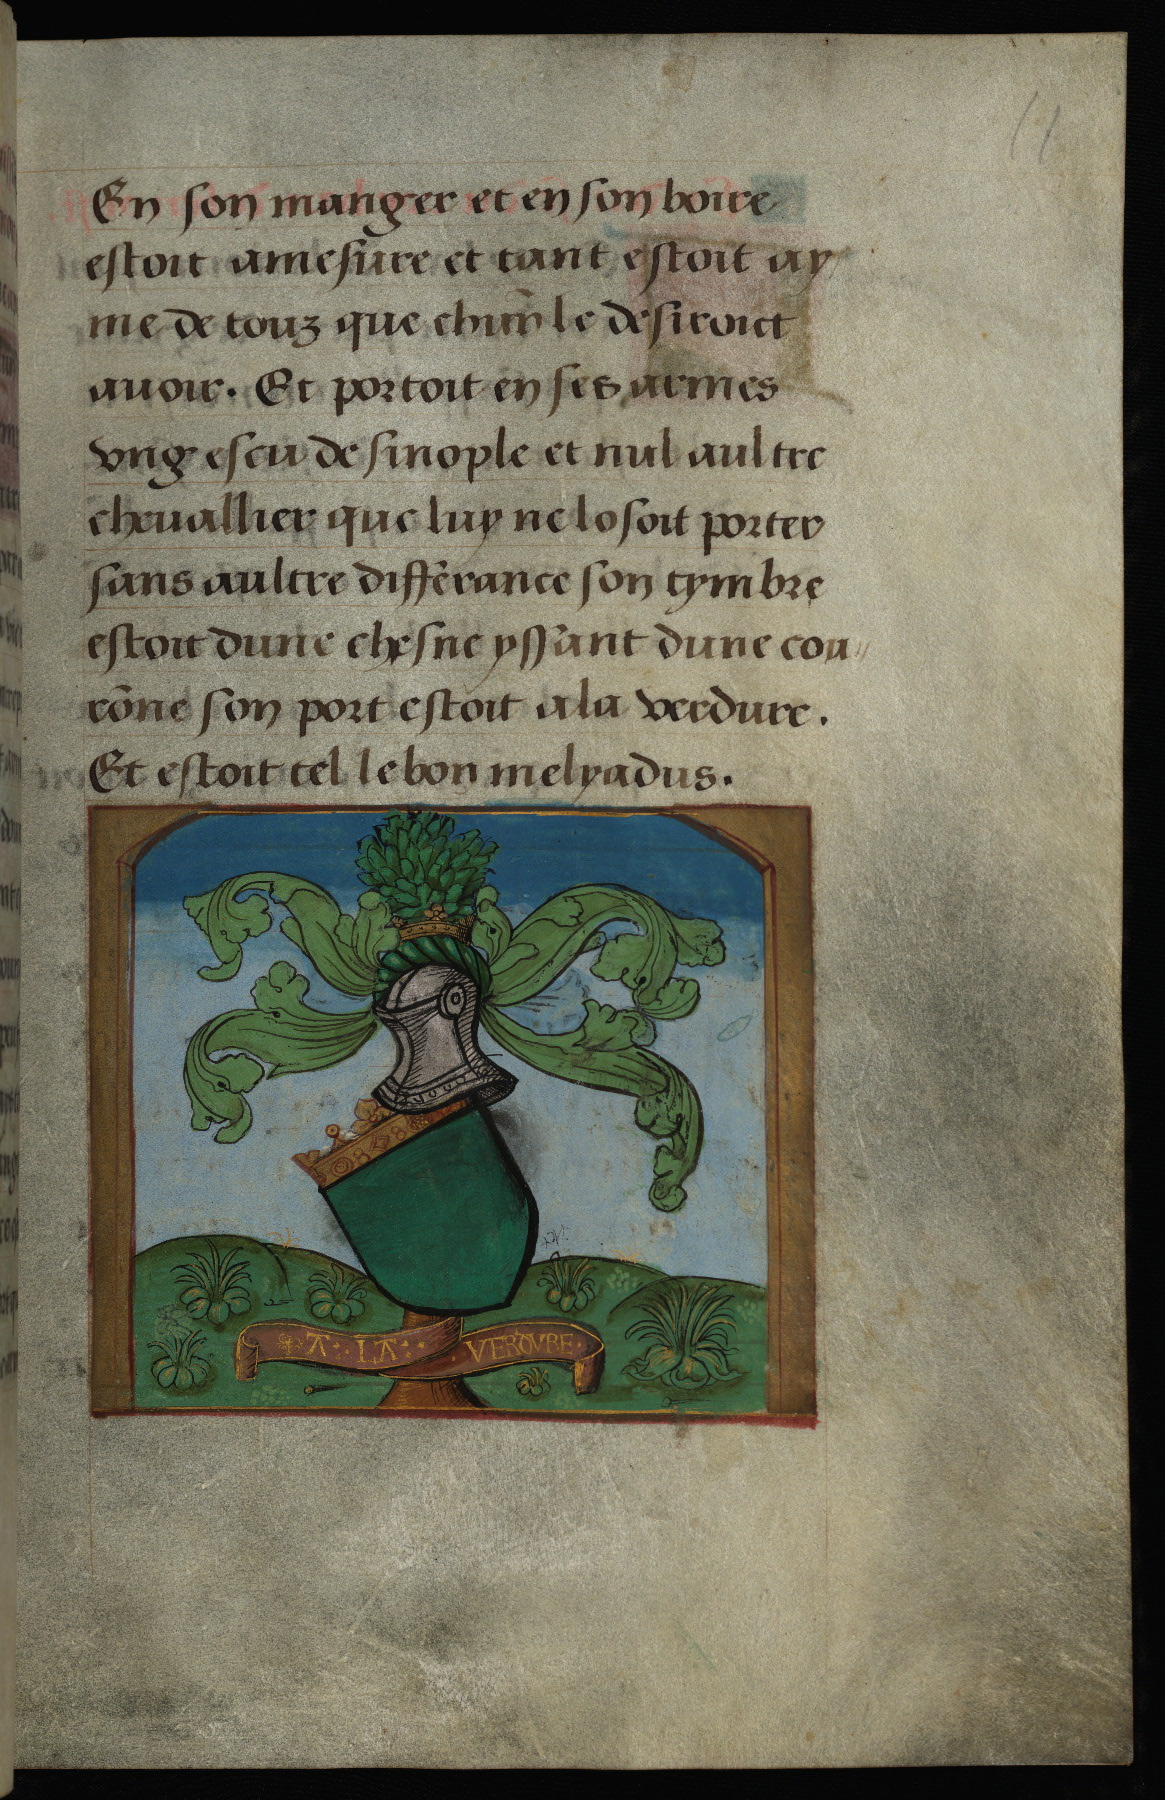 11
En son manger et en son boire
estoit amesure et tant estoit ay
me de touz que chūn le desiroict
auoir. Et portoit en ses armes
vng escu de sinople et nul aultre
cheuallier que luy ne losoit porter
sans aultre differance son tymbre
estoit dune chesne yssant dune cou〃
rōne son port estoit ala verdure.
Et estoit tel le bon melyadus.
A · LA · VERDVRE ·